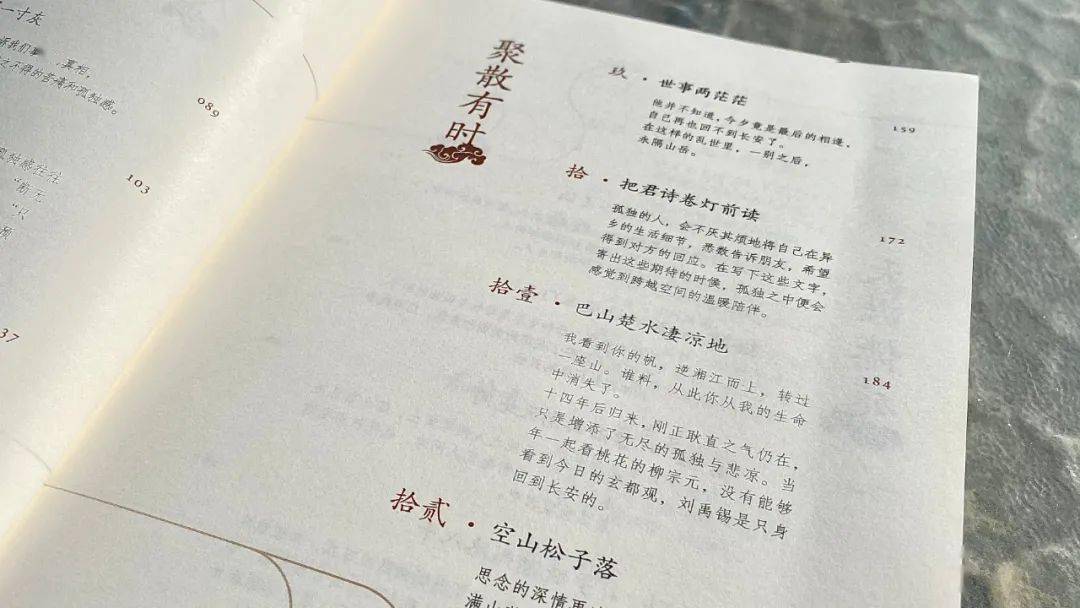 一寸灰
真相，
之不得的苦痛和孤独感。
089
103
“元
“只
37
聚散有时
玖·世事两茫茫
159
他并不知道，今夕竟是最后的相逢，
自己再也回不到长安了。
在这样的乱世里，一别之后，
永隔山岳。
拾·把君诗卷灯前读
172
孤独的人，会不厌其烦地将自己在异
乡的生活细节，悉数告诉朋友，希望
得到对方的回应。在写下这些文字，
寄出这些期待的时候，孤独之中便会
感觉到跨越空间的温暖陪伴。
拾壹·巴山楚水凄凉地
184
我看到你的帆，逆湘江而上，转过
一座山。谁料，从此你从我的生命
中消失了。
十四年后归来，刚正耿直之气仍在，
只是增添了无尽的孤独与悲凉。当
年一起看桃花的柳宗元，没有能够
看到今日的玄都观，刘禹锡是只身
回到长安的。
拾贰·空山松子落
思念的深情更
满山